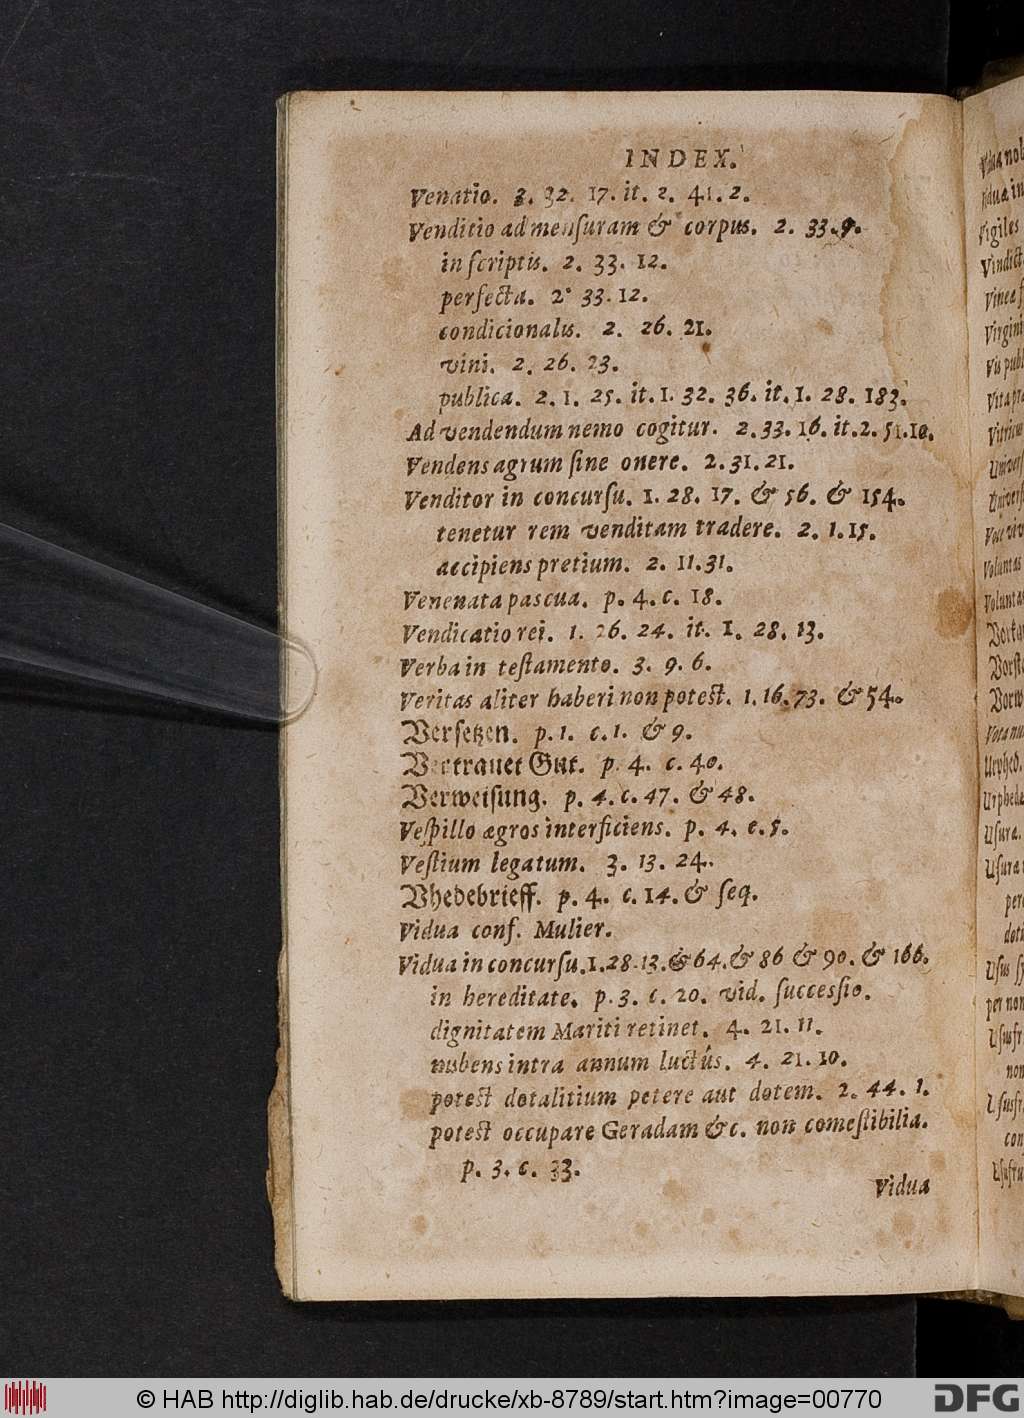 INDEX.
Venatio. 3. 32. 17. it. 2. 41. 2.
Venditio ad mensuram & corpus. 2. 33. 9.
in scriptis. 2. 33. 12.
perfecta. 2. 33. 12.
condicionalis. 2. 26. 21.
vini. 2. 26. 23.
publica. 2. 1. 25. it. 1. 32. 36. it. 1. 28. 183.
Ad vendendum nemo cogitur. 2. 33. 16. it. 2. 51. 10.
Vendens agrum sine onere. 2. 31. 21.
Venditor in concursu. 1. 28. 17. & 56. & 154.
tenetur rem venditam tradere. 2. 1. 15.
accipiens pretium. 2. 11. 31.
Venenata pascua. p. 4. c. 18.
Vendicatio rei. 1. 26. 24. it. 1. 28. 13.
Verba in testamento. 3. 9. 6.
Veritas aliter haberi non potest. 1. 16. 73. & 54.
Versetzen. p. 1. c. 1. & 9.
Vertrauet Gut. p. 4. c. 40.
Verweisung. p. 4. c. 47. & 48.
Vespillo ægros interficiens. p. 4. c. 5.
Vestium legatum. 3. 13. 24.
Vhedebrieff. p. 4. c. 14. & seq.
Vidua conf. Mulier.
Vidua in concursu. 1. 28. 13. & 64. & 86 & 90. & 166.
in hereditate. p. 3. c. 20. vid. successio.
dignitatem Mariti retinet. 4. 21. 11.
nubens intra annum luctûs. 4. 21. 10.
potest dotalitium petere aut dotem. 2. 44. 1.
potest occupare Geradam &c. non comestibilia.
p. 3. c. 33.
Vidua
© HAB http://diglib.hab.de/drucke/xb-8789/start.htm?image=00770
DFG